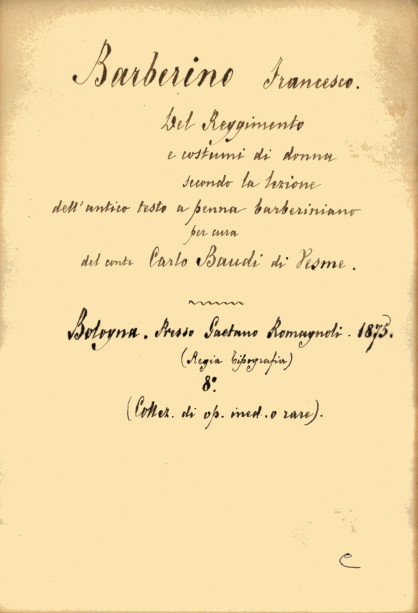 Barberino Francesco.
Del Reggimento
e costumi di donna
secondo la lezione
dell'antico testo a penna barberiniano
per cura
del conte Carlo Baudi di Vesme.
Bologna. Presso Gaetano Romagnoli. 1875.
(Regia tipografia)
8°.
(Collez. di op. ined. o rare).
C